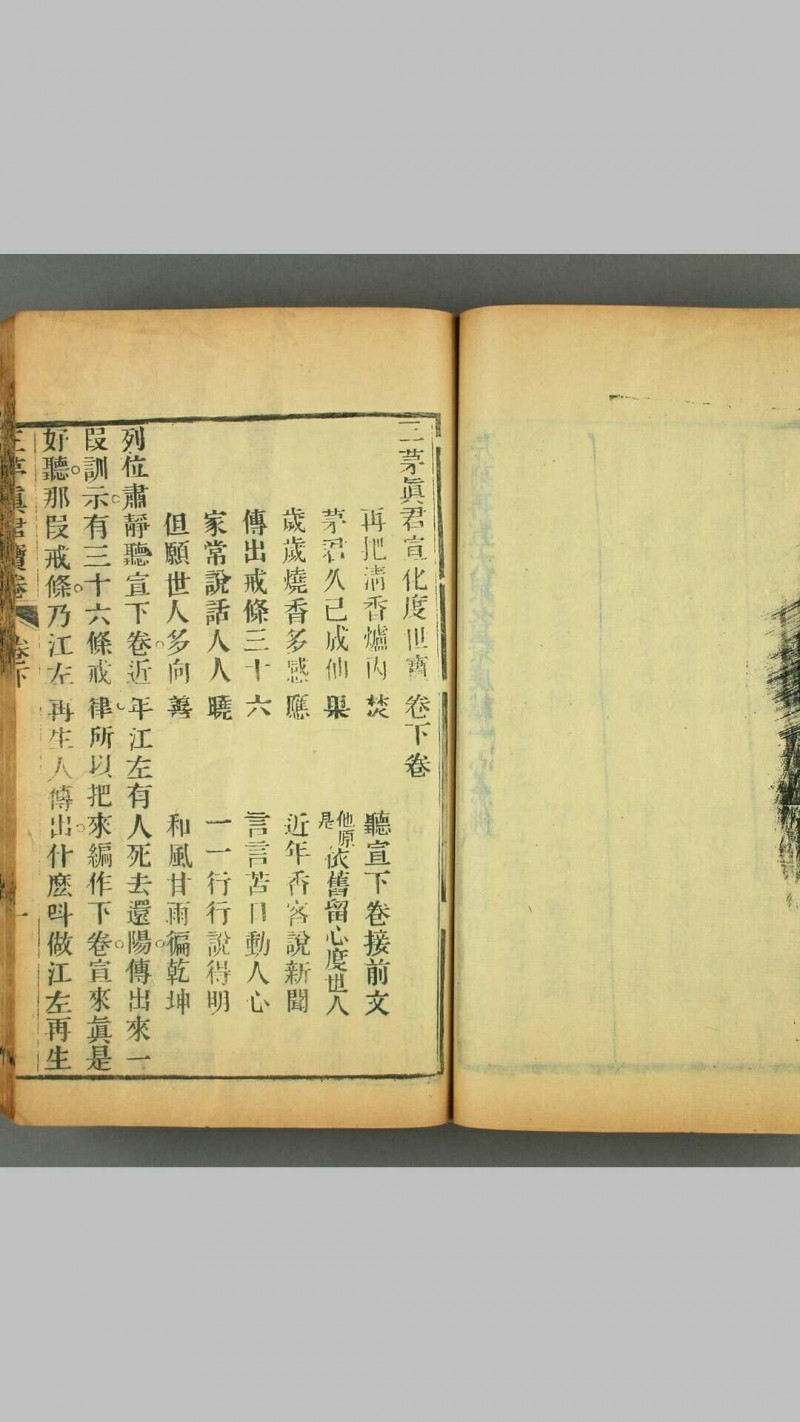 三茅真君宣化度世寳卷下卷
再把清香爐内焚　聽宣下卷接前文
茅君久已成仙果　他原是依舊留心度世人
歲歲燒香多感應　近年香客說新聞
傳出戒條三十六　言言苦口動人心
家常說話人人曉　一一行行說得明
但願世人多向善　和風甘雨徧乾坤
列位肅靜聽宣下卷近年江左有人死去還陽傳出來一
段訓示有三十六條戒律所以把來編作下卷宣來眞是
好聽那段戒條乃江左再生人傳出什麽呌做江左再生
三茅真君寶卷　卷下　一